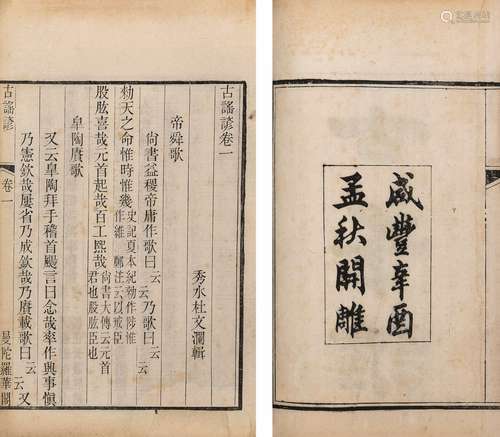 咸豐辛酉
孟秋開雕
古謠諺卷一
秀水杜文瀾輯
帝舜歌
尚書益稷帝庸作歌曰云云乃歌曰云云
勑天之命惟時惟幾史記夏本紀勑作陟惟作維鄭注云以戒臣
股肱喜哉元首起哉百工熙哉尚書大傳云元首君也股肱臣也
皋陶賡歌
又云皋陶拜手稽首颺言曰念哉率作興事慎
乃憲欽哉屢省乃成欽哉乃賡載歌曰云云又
古謠諺 卷一 曼陀羅華閣